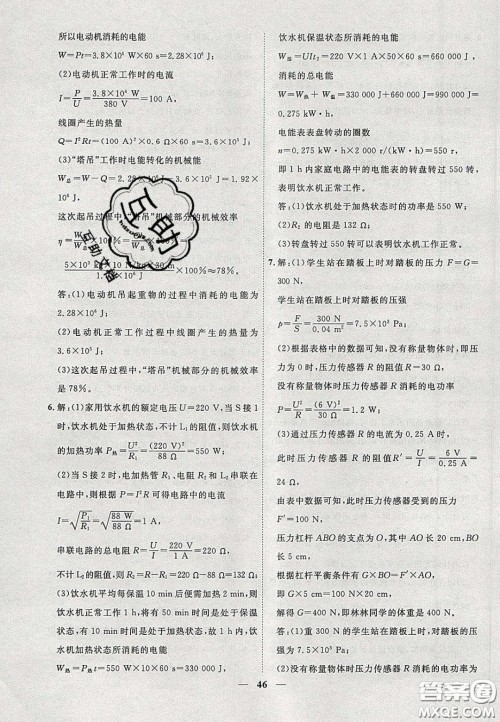 所以电动机消耗的电能
W=Pt=3.8×10⁴ W×60 s=2.28×10⁶ J
(2)电动机正常工作时的电流
I=P/U=3.8×10⁴ W/380 V=100 A,
线圈产生的热量
Q=I²Rt=(100 A)²×0.6 Ω×60 s=3.6×10⁵ J
(3)“塔吊”工作时电能转化的机械能
这次起吊过程中“塔吊”机械部分的机械效率
×100%=78%。
答:(1)电动机吊起重物的过程中消耗的电能为
(2)电动机正常工作过程中线圈产生的热量为
3.6×10⁵ J;
(3)这次起吊过程中,“塔吊”机械部分的机械效率
是 78%。
6.解:(1)家用饮水机的额定电压U=220 V,当 S 接 1
时,饮水机处于加热状态,不计 L₁ 的阻值,则饮水机
的加热功率 P热=U²/R₂=(220 V)²/88 Ω=550 W;
(2)当 S 接 2 时,电加热管 R₁、电阻 R₂ 和 L₂ 串联在
电路中,则电路中的电流
I=√(P₁/R₁)=√(88 W/88 Ω)=1 A,
串联电路的总电阻 R=U/I=220 V/1 A=220 Ω,
不计 L₂ 的阻值,则 R₂=R−R₁=220 Ω−88 Ω=132 Ω;
(3)饮水机平均每保温 50 min 后便需加热 10 min,
则在 1 h 内,将有 50 min 时间是处于保温
状态,有 10 min 时间是处于加热状态。故 1 h 内,饮
水机加热状态所消耗的电能
W热=P热t=550 W×10×60 s=330 000 J
饮水机保温状态所消耗的电能
W保=UIt₂=220 V×1 A×50×60 s=660 000 J
消耗的总电能
W总=W热+W保=330 000 J+660 000 J=990 000 J=
0.275 kW·h
电能表表盘转动的圈数
n=0.275 kW·h×2 000 r/(kW·h)=550 r,
即 1 h 内家庭电路中的电能表的转盘转过 550 转,
表明饮水机正常工作。
答:(1)饮水机处于加热状态时的功率是 550 W;
(2)电阻 R₂ 的阻值是 132 Ω;
(3)转盘转过 550 转可以表明饮水机正常工作。
7.解:(1)学生站在踏板上时对踏板的压力 F=G=
300 N
学生站在踏板上时对踏板的压强
p=F/S=300 N/0.04 m²=7.5×10³ Pa;
(2)根据表格中的数据可知,无称量物体时,即压力
F=0 N,压力传感器 R 的阻值 R=30 Ω,
则无称量物体时压力传感器 R 消耗的电功率
P=U²/R=(6 V)²/30 Ω=1.2 W;
(3)通过压力传感器 R 的最大电流 I=0.25 A,
此时压力传感器 R 的阻值 R′=U/I=6 V/0.25 A=
24 Ω
由表中数据可知,此时压力传感器受到的压力
F′=100 N,
压力杠杆 ABO 的支点为 O,其中 AO 长 20 cm,
BO 长 5 cm,
根据杠杆平衡条件有 G×BO=F′×AO,
即 G×5 cm=100 N×20 cm,
解得 G=400 N,即林林同学的体重是 400 N。
答:(1)学生站在踏板上时对踏板的压强为
7.5×10³ Pa;
(2)无称量物体时,压力传感器 R 消耗的电功率为
46
互助
互助文档
答案圈
MXQE.COM